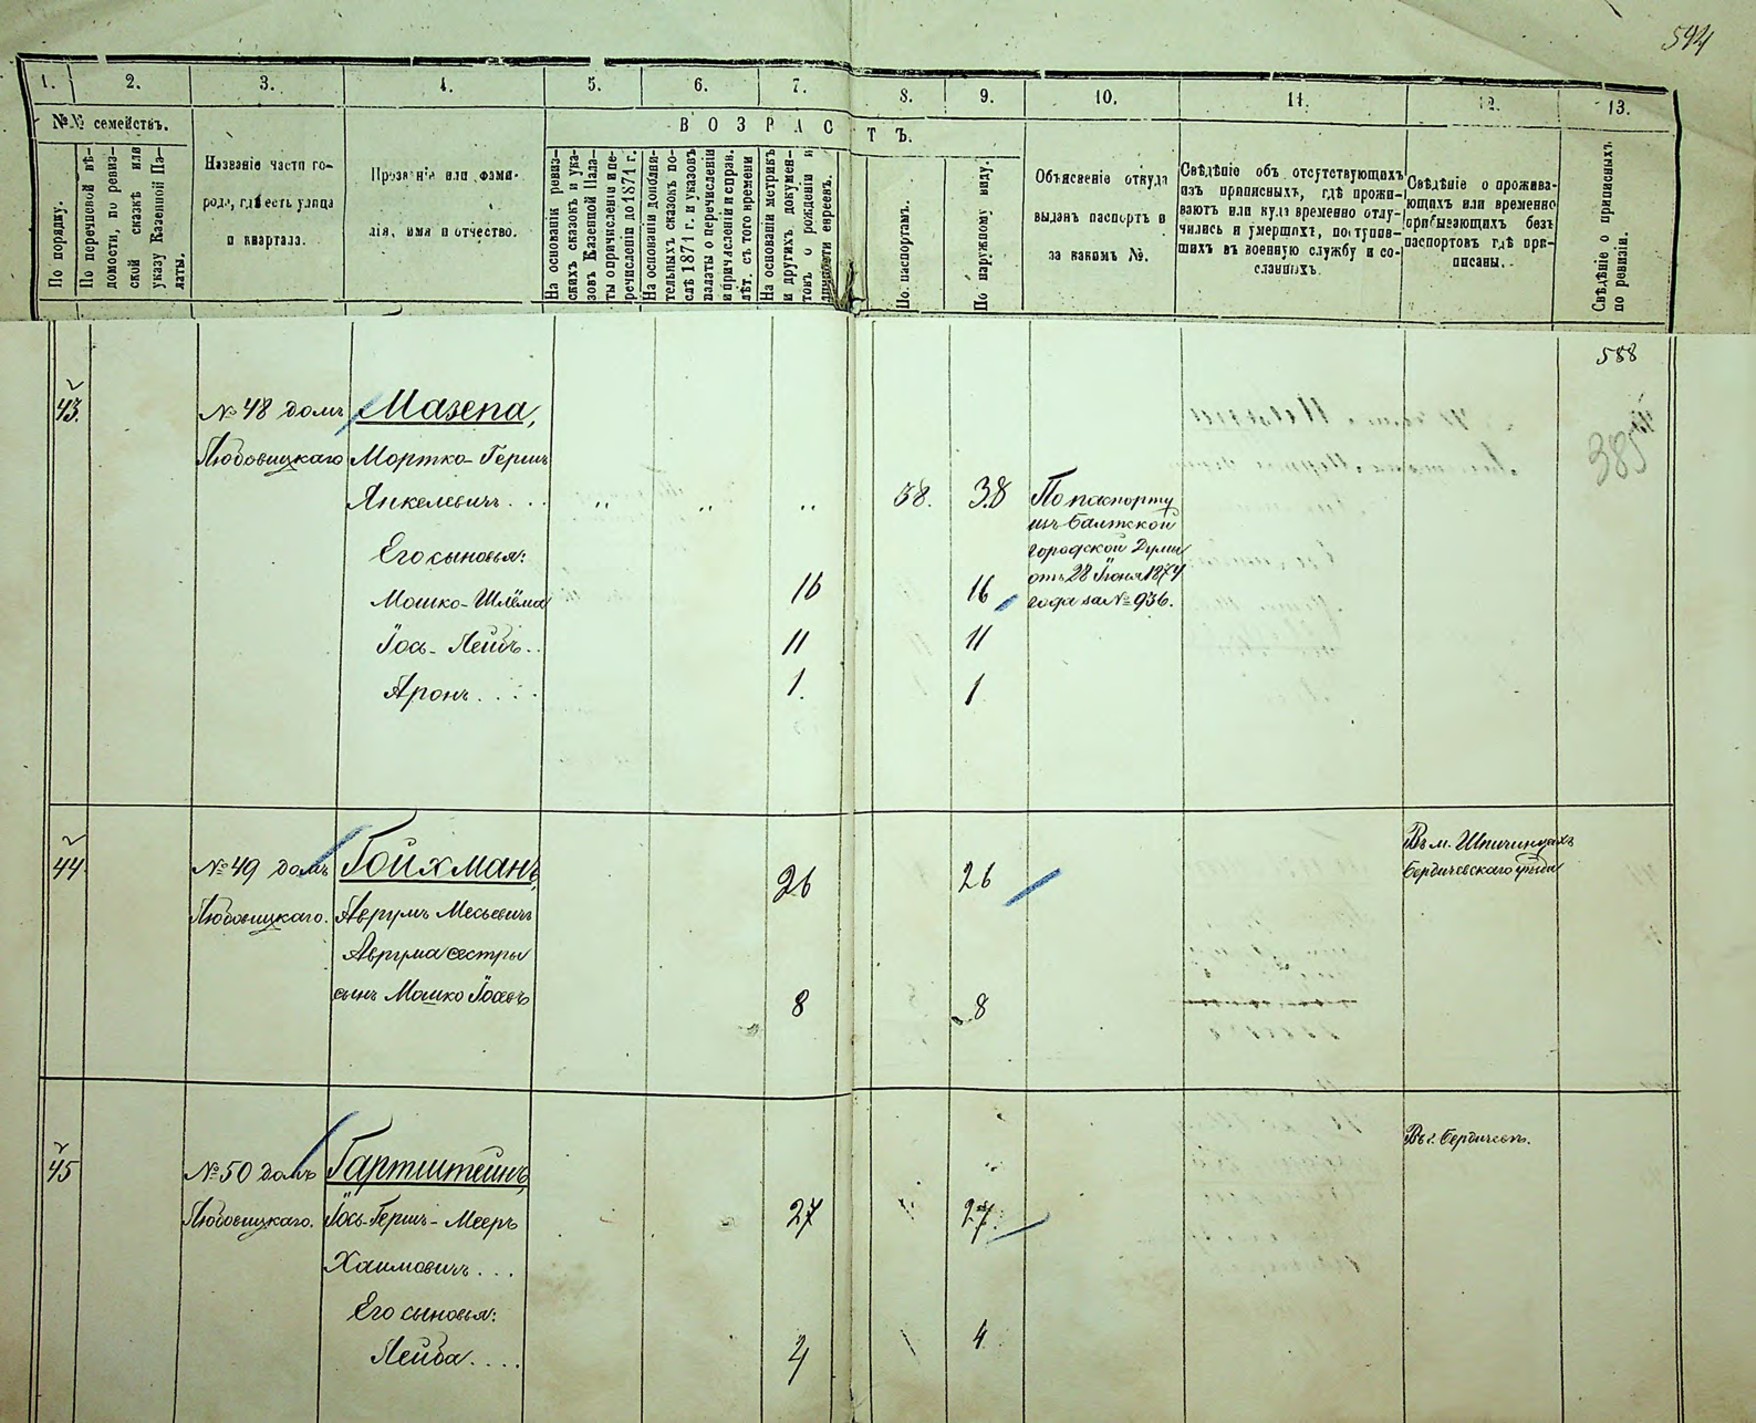 594
1. 2. 3. 4. 5. 6. 7. 8. 9. 10. 11. 12. 13.
№№ семействъ.
По порядку.
По перечневой вѣ-
домости, по ревиз-
ской сказкѣ или
указу Казенной Па-
латы.
Названіе части го-
рода, гдѣ есть улица
и квартала.
Прозваніе или фами-
лія, имя и отчество.
ВОЗРАСТЪ.
На основаніи ревиз-
скихъ сказокъ и ука-
зовъ Казенной Пала-
ты о причисленіи и пе-
речисленіи до 1871 г.
На основаніи дополни-
тельныхъ сказокъ по-
слѣ 1871 г. и указовъ
палаты о перечисленіи
и причисленіи и справ.
лѣт. съ того времени
На основаніи метрикъ
и другихъ докумен-
товъ о рожденіи и
евреевъ.
По паспортамъ.
По наружному виду.
Объясненіе откуда
выданъ паспортъ и
за какимъ №.
Свѣдѣніе объ отсутствующихъ
изъ приписныхъ, гдѣ прожи-
ваютъ или куда временно отлу-
чились и умершихъ, поступив-
шихъ въ военную службу и со-
сланныхъ.
Свѣдѣніе о прожива-
ющихъ или временно
прибывающихъ безъ
паспортовъ гдѣ при-
писаны.
Свѣдѣніе о приписныхъ
по ревизіи.
588
385
43. № 48 домъ Мазепа,
Любовицкаго Мортко-Герш
Янкелевичъ . . . „ „ „ 38. 38 По паспорту
изъ Балтской
городской Думы
отъ 28 Іюня 1874
года за № 936.
Его сыновья:
Мошко-Шлёма 16 16
Іось-Лейбъ . . 11 11
Аронъ . . . . 1. 1
44 № 49 домъ Гойхманъ, 26 26 Въ м. Шпичинцахъ
Бердичевскаго уѣзда
Любовицкаго. Аврумъ Месьевичъ
Аврума сестры
сынъ Мошко Іосевъ 8 8
45 № 50 домъ Гартштейнъ, Въ г. Бердичевѣ.
Любовицкаго. Іось-Гершъ-Мееръ 27 27.
Хаимовичъ . . .
Его сыновья:
Лейба . . . . 4 4